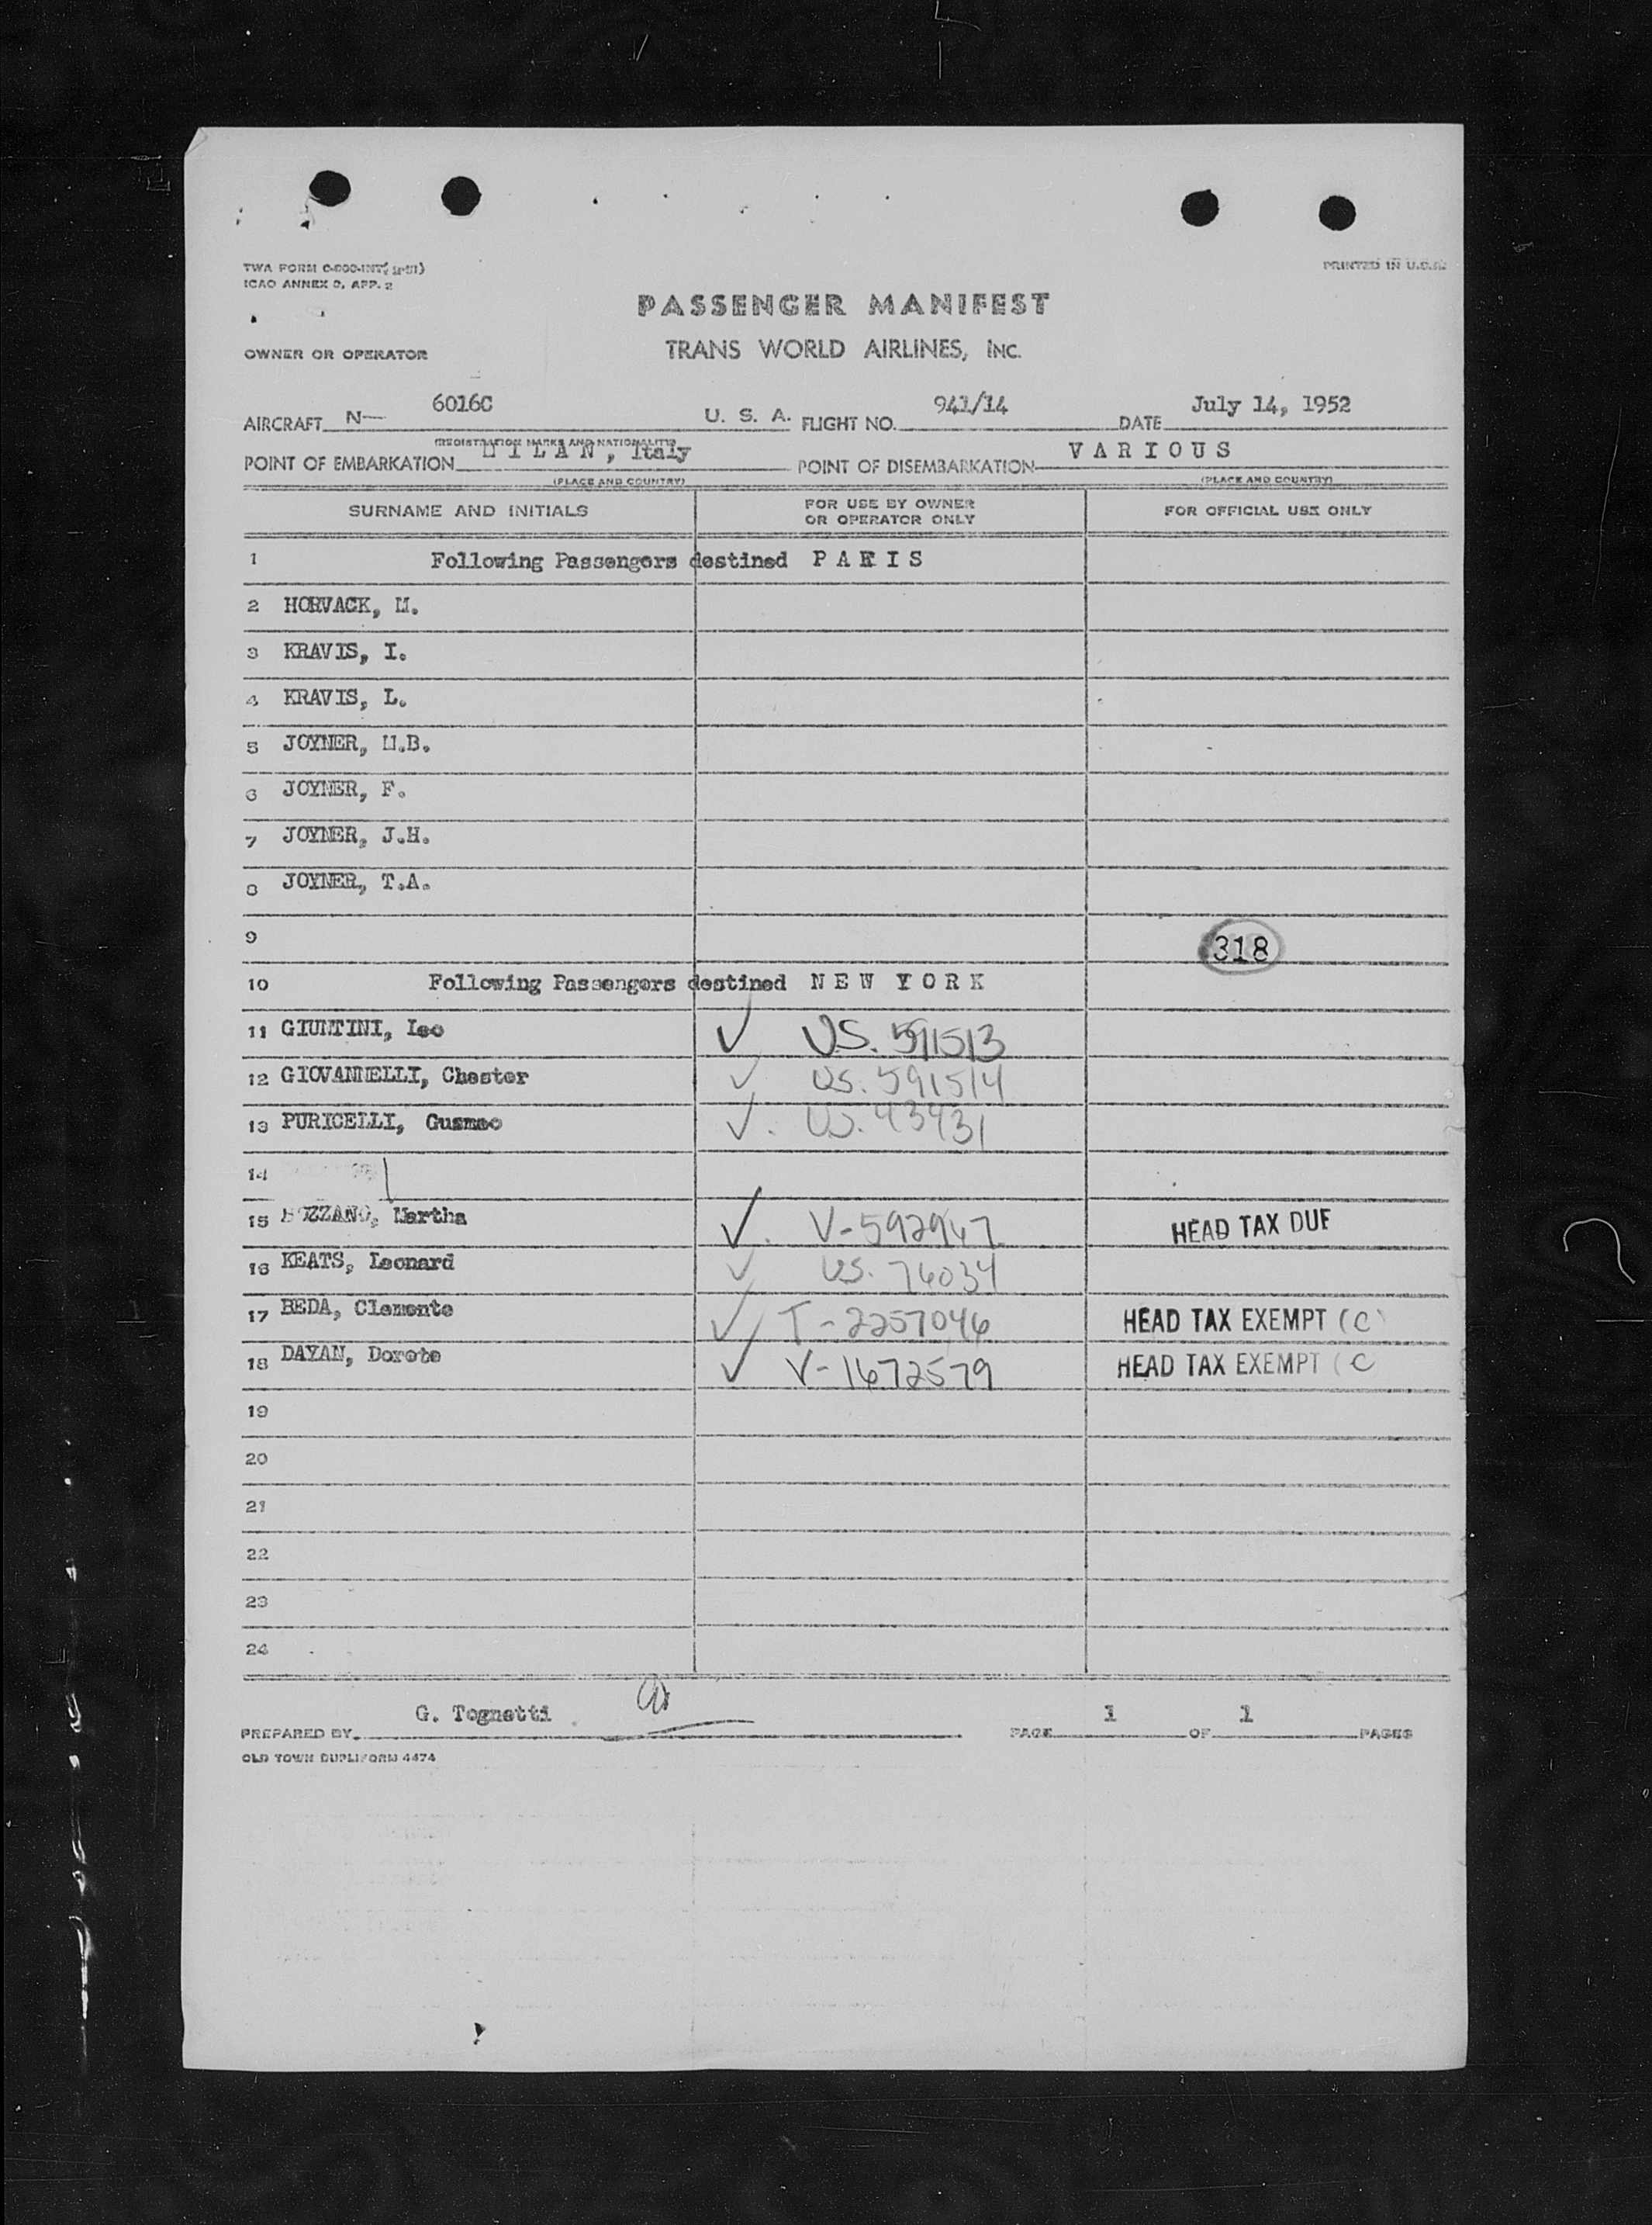 TWA FORM
PRINTED IN U.S.A.
ICAO ANNEX 9, APP. 2
PASSENGER MANIFEST
OWNER OR OPERATOR
TRANS WORLD AIRLINES, INC.
AIRCRAFT N— 6016C U. S. A. FLIGHT NO. 941/14 DATE July 14, 1952
(REGISTRATION MARKS AND NATIONALITY)
POINT OF EMBARKATION MILAN, Italy POINT OF DISEMBARKATION VARIOUS
(PLACE AND COUNTRY) (PLACE AND COUNTRY)
SURNAME AND INITIALS FOR USE BY OWNER OR OPERATOR ONLY FOR OFFICIAL USE ONLY
1 Following Passengers destined PARIS
2 HORVACK, M.
3 KRAVIS, I.
4 KRAVIS, L.
5 JOYNER, M.B.
6 JOYNER, F.
7 JOYNER, J.H.
8 JOYNER, T.A.
9 318
10 Following Passengers destined NEW YORK
11 GIUNTINI, Leo ✓ US. 591513
12 GIOVANNELLI, Chester ✓ US. 591514
13 PURICELLI, ✓ US. 43431
14
15 BOZZANO, Martha ✓ V-592947 HEAD TAX DUE
16 KEATS, Leonard ✓ US. 76034
17 BEDA, Clemente ✓ T-2257046 HEAD TAX EXEMPT (C)
18 DAYAN, ✓ V-1672579 HEAD TAX EXEMPT (C
19
20
21
22
23
24
PREPARED BY G. Tognetti PAGE 1 OF 1 PAGES
OLD TOWN DUPLIFORM 4474